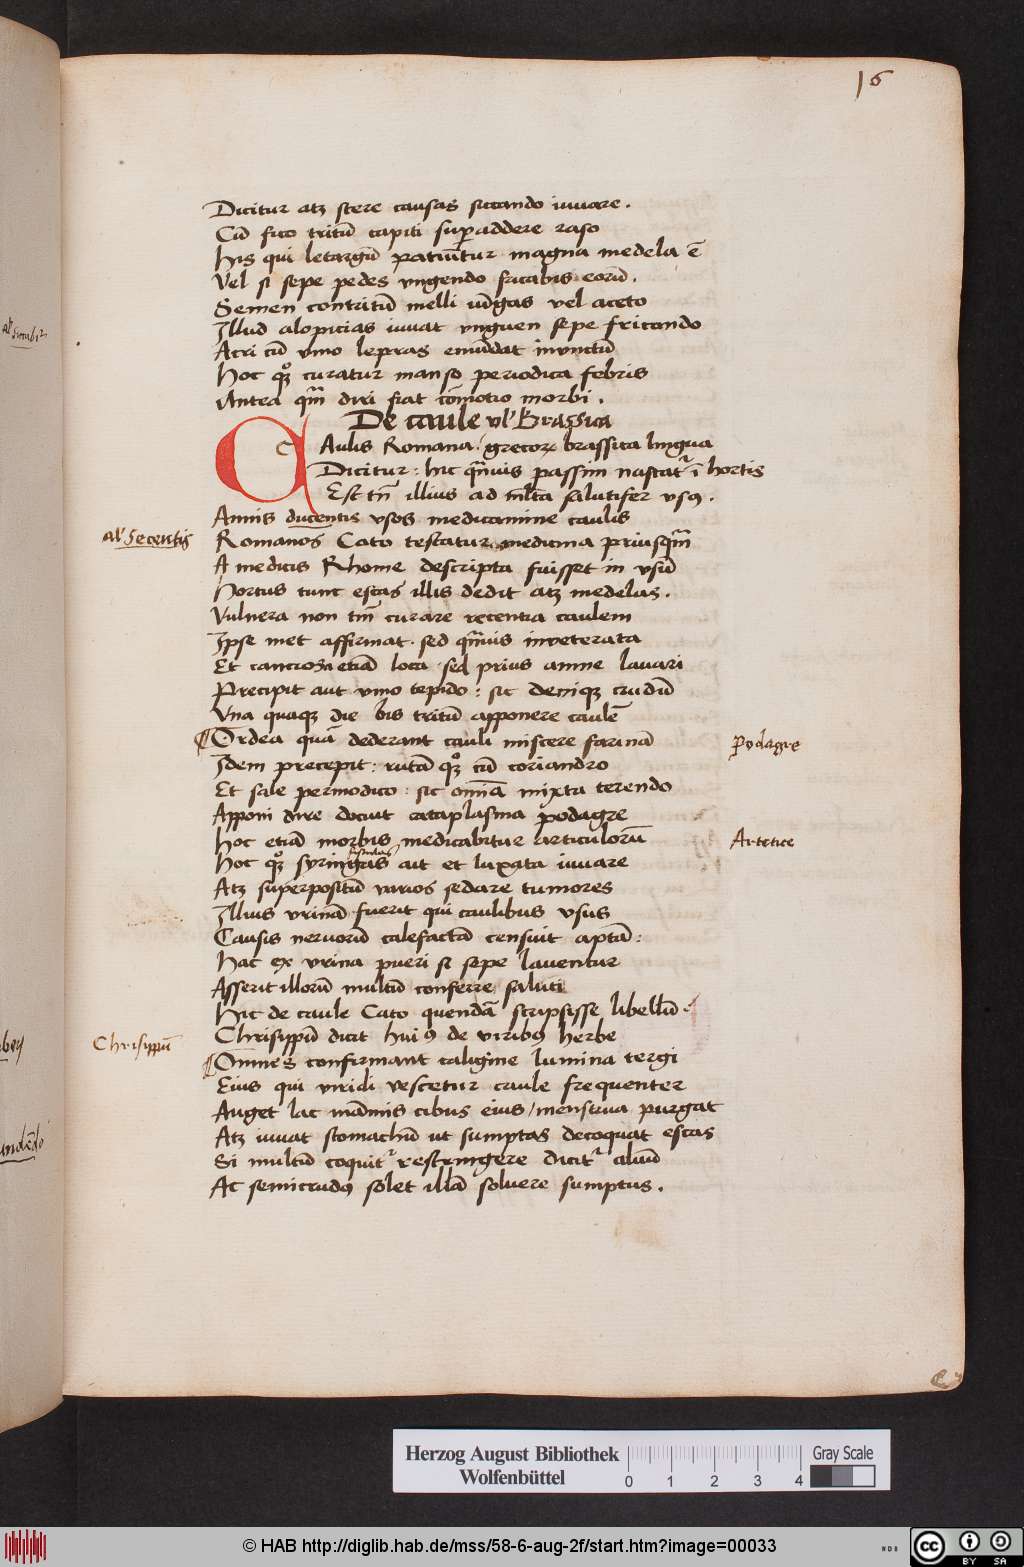 16
Dicitur atꝫ stere causas siccando iuuare .
Cū fico tritū capiti sup̄addere raso
His qui letargū patiūtur magna medela ē
Vel si sepe pedes vngendo fricabis eorū .
Semen contritū melli iūgas vel aceto
Illud alopicias iuuat vnguen sepe fricando
Acri cū vino lepras emūdat inunctū
Hoc qͦꝫ curatur manso periodica febris
Antea qm̄ diri fiat cōmotio morbi .
De caule ul' Brassica
CAulis Romana / grecoꝝ brassica lingua
Dicitur : hic qm̄uis passim nascatᷣ ī hortis
Est tn̄ illius ad ml̄ta salutifer vsꝰ .
Annis ducentis vsos medicamine caulis
al' Secentis
Romanos Cato testatur medicina priusqm̄
A medicis Rhome descripta fuisset in vsū
Hortus tunc escas illis dedit atꝫ medelas .
Vulnera non tm̄ curare recentia caulem
Ipse met affirmat . sed qm̄uis inveterata
Et cancrosa etiā loca . sed prius amne lauari
Precipit aut vino tepido : sic deniqꝫ crudū
Vna quaqꝫ die bis tritū apponere caulē
¶ Ordea quā dederant cauli miscere farinā
Podagre
Idem precepit : rutā qͦꝫ cū coriandro
Et sale permodico : sic om̄ia mixta terendo
Apponi dire docuit cataplasma podagre
Hoc etiā morbis medicabitur articulorū
Artetice
Hoc qͦꝫ syringas ait et luxata iuuare
Atꝫ superpositū varios sedare tumores
Illius vrinā fuerit qui caulibus vsus
Causis neruorū calefactā censuit aptā :
Hac ex vrina pueri si sepe lauentur
Asserit illorū multū conferre saluti
Hic de caule Cato quendā scripsisse libellū .
Chrisippū dicit huiꝰ de viribꝰ herbe
Chrisippū
¶ Omnes confirmant caligine lumina tergi
Eius qui viridi vescetur caule frequenter
Auget lac māmis cibus eius / menstrua purgat
Atꝫ iuuat stomachū ut sumptas decoquat escas
Si multū coquitᷣ restringere dicitᷣ aluū
Ac semicrudꝰ solet illā soluere sumptus .
Herzog August Bibliothek
Wolfenbüttel
0 1 2 3 4
Gray Scale
© HAB http://diglib.hab.de/mss/58-6-aug-2f/start.htm?image=00033
WDB
cc BY SA